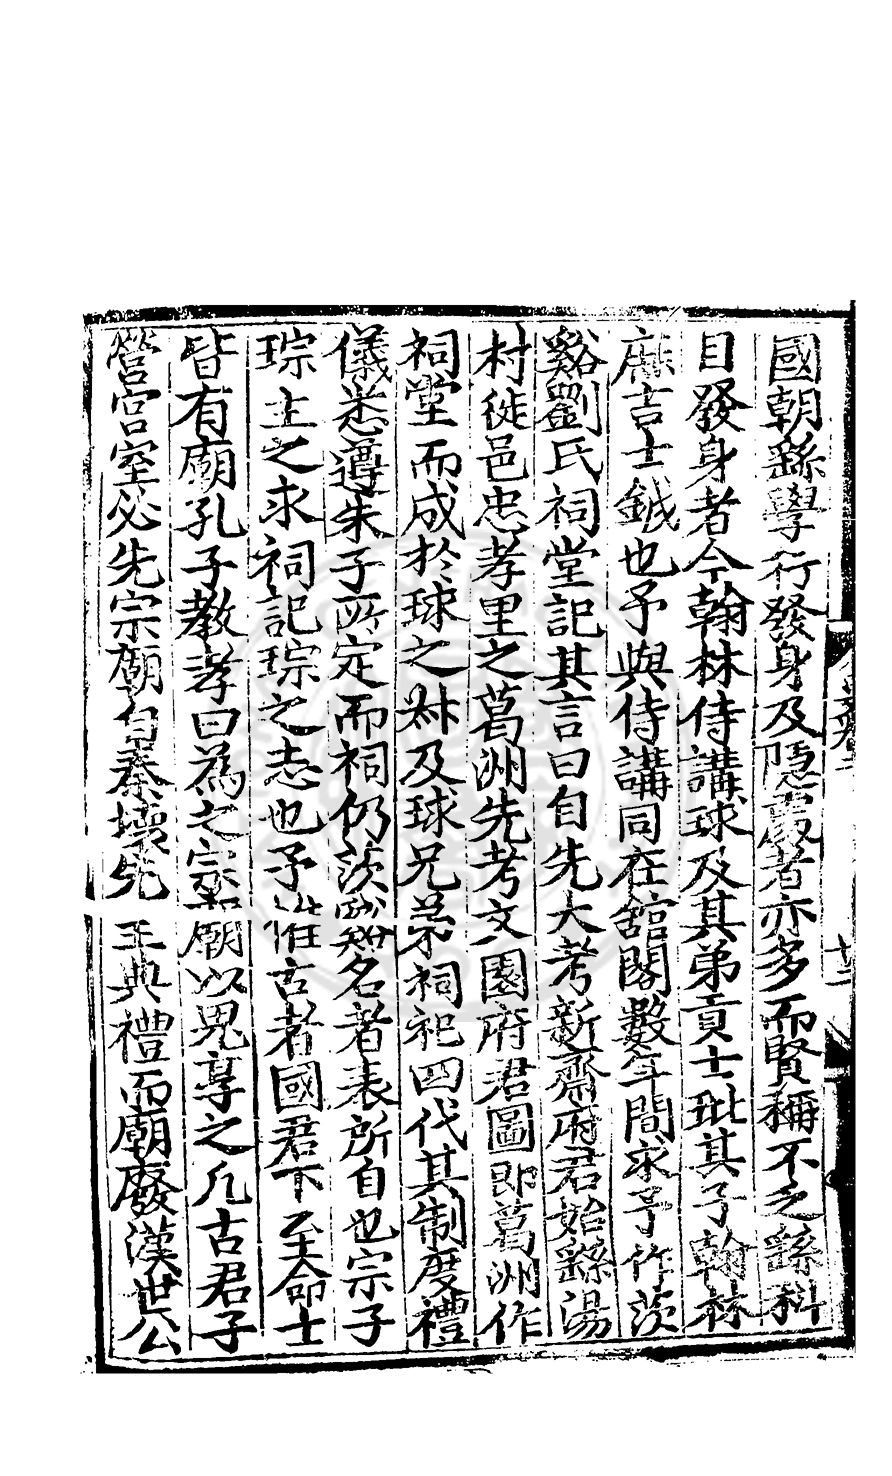 國朝繇學行發身及隱處者亦多而賢稱不乏繇科
目發身者今翰林侍講球及其弟貢士玭其子翰林
庶吉士鉞也予與侍講同在舘閣數年間求予作茨
谿劉氏祠堂記其言曰自先大考新齋府君始繇湯
村徙邑忠孝里之葛洲先考文園府君圖即葛洲作
祠堂而成於球之叔及球兄弟祠祀四代其制度禮
儀悉遵朱子所定而祠仍茨谿名者表所自也宗子
琮主之求祠記琮之志也予惟古者國君下至命士
皆有廟孔子教孝曰為之宗廟以鬼享之凡古君子
營宫室必先宗廟自秦壞先王典禮而廟廢漢世公
十二